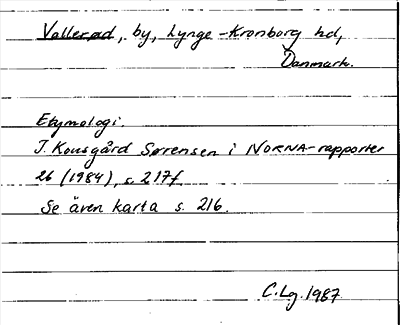 Vallerød, by, Lynge-Kronborg hd,
Danmark.
Etymologi.
J. Kousgård Sørensen i NORNA-rapporter
26 (1984), s. 217f.
Se även karta s. 216.
C.Lg. 1987